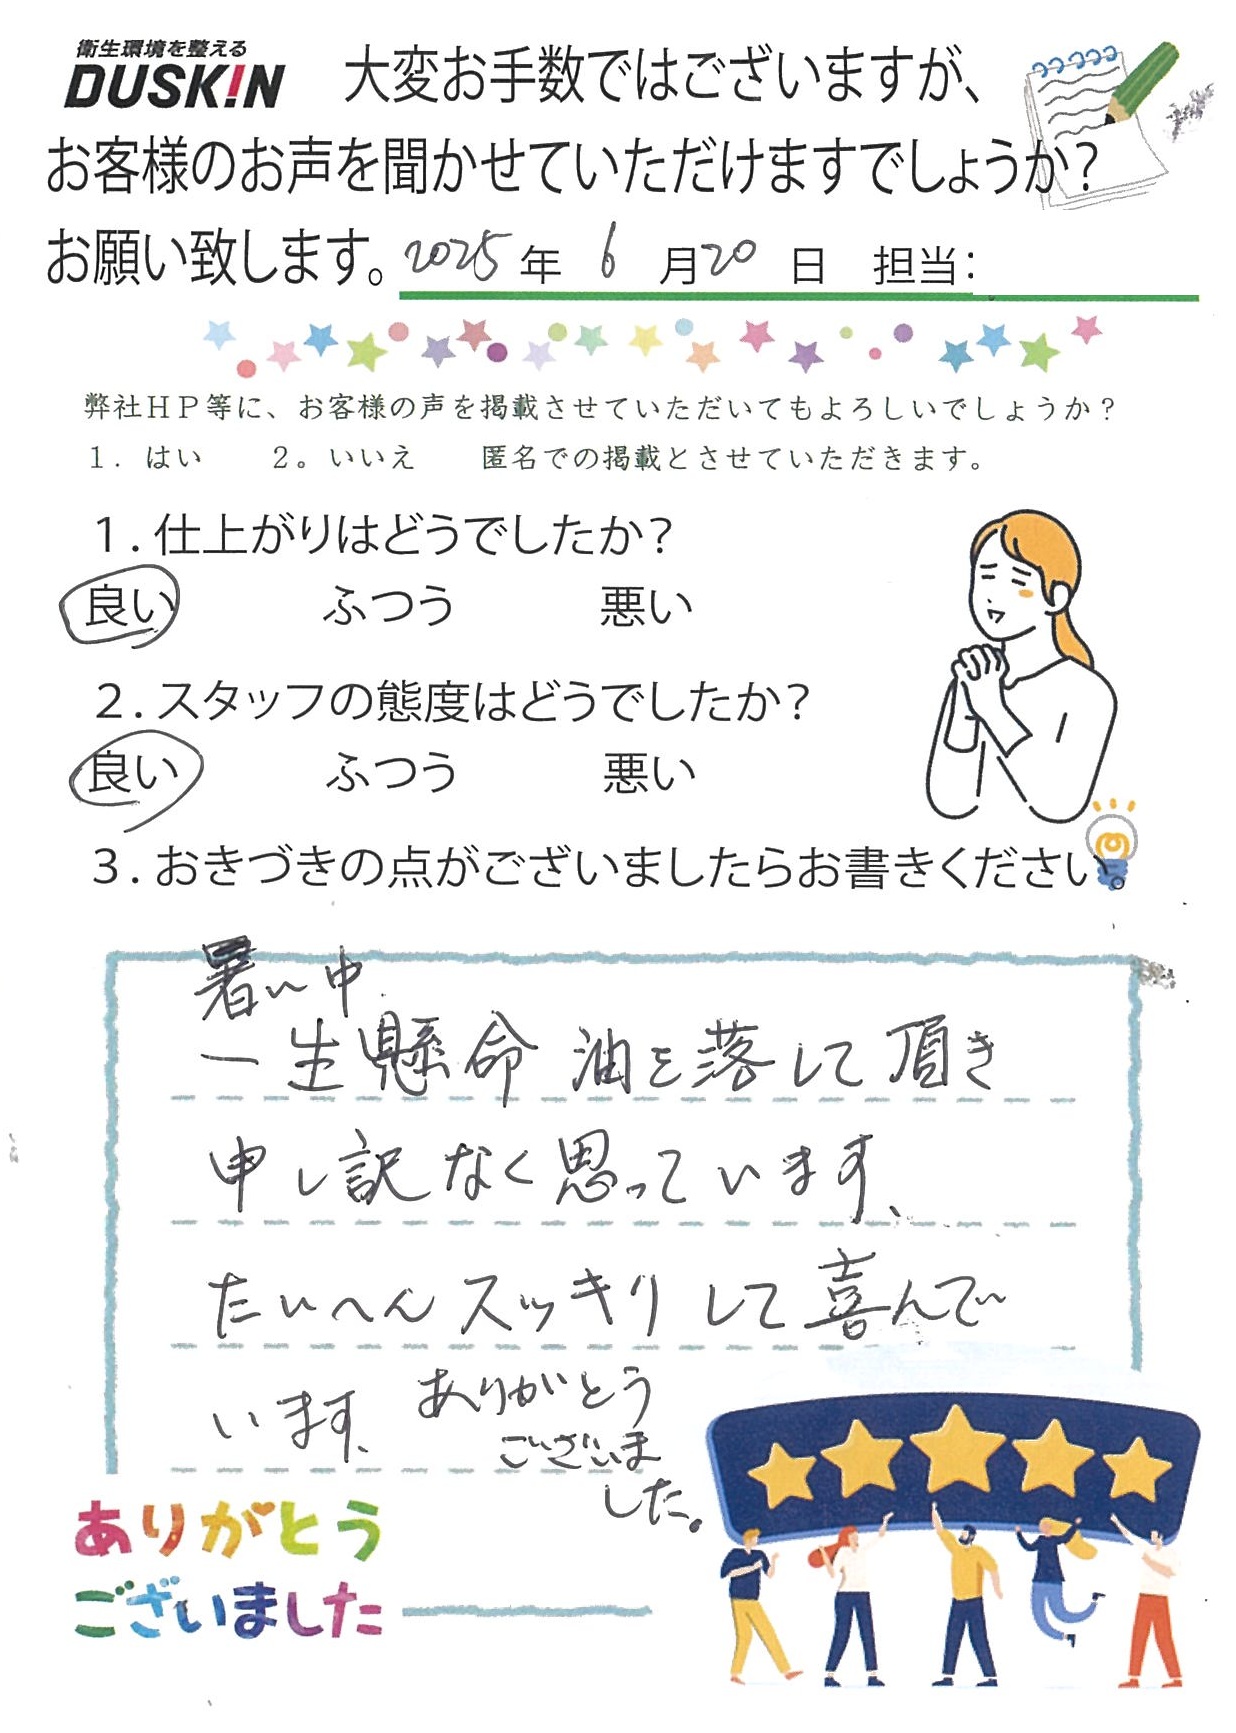 衛生環境を整える
DUSKIN 大変お手数ではございますが、
お客様のお声を聞かせていただけますでしょうか？
お願い致します。2025年 6 月20 日 担当：
弊社ＨＰ等に、お客様の声を掲載させていただいてもよろしいでしょうか？
１．はい ２。いいえ 匿名での掲載とさせていただきます。
１．仕上がりはどうでしたか？
良い ふつう 悪い
２．スタッフの態度はどうでしたか？
良い ふつう 悪い
３．おきづきの点がございましたらお書きください。
暑い中
一生懸命 油を落して頂き
申し訳なく思っています、
たいへんスッキリして喜んで
います、ありがとう
ございま
した。
ありがとう
ございました